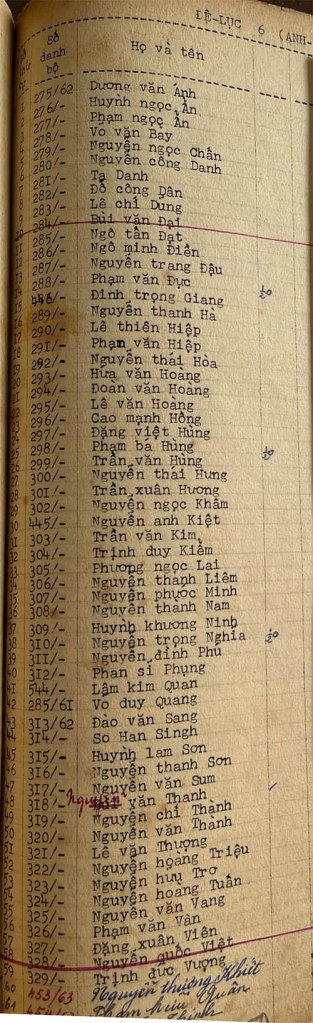 ĐỆ-LỤC 6 (ANH-
Số danh bộ Họ và tên
275/62 Dương văn Ảnh
276/- Huỳnh ngọc Ẩn
277/- Phạm ngọc Ẩn
278/- Vo văn Bay
279/- Nguyễn ngọc Chấn
280/- Nguyễn công Danh
281/- Tạ Danh
282/- Đỗ công Dân
283/- Lê chí Dũng
284/- Bùi văn Đại
285/- Ngô tấn Đạt
286/- Ngô minh Điền
287/- Nguyễn trang Đậu
288/- Phạm văn Đực
446/- Đinh trọng Giang
289/- Nguyễn thanh Hà
290/- Lê thiên Hiệp
291/- Phạm văn Hiệp
292/- Nguyễn thái Hòa
293/- Hứa văn Hoàng
294/- Đoàn văn Hoàng
295/- Lê văn Hoàng
296/- Cao mạnh Hồng
297/- Đặng việt Hùng
298/- Phạm bá Hùng
299/- Trần văn Hùng
300/- Nguyễn thái Hưng
301/- Trần xuân Hương
302/- Nguyễn ngọc Khâm
445/- Nguyễn anh Kiệt
303/- Trần văn Kim
304/- Trịnh duy Kiêm
305/- Phương ngọc Lai
306/- Nguyễn thanh Liêm
307/- Nguyễn phước Minh
308/- Nguyễn thanh Nam
309/- Huỳnh khương Ninh
310/- Nguyễn trọng Nghĩa
311/- Nguyễn đình Phú
312/- Phan sĩ Phụng
544/- Lâm kim Quan
42 285/61 Vo duy Quang
43 313/62 Đào văn Sang
44 314/- So Han Singh
45 315/- Huỳnh lam Sơn
46 316/- Nguyễn thanh Sơn
47 317/- Nguyễn văn Sum
48 318/- Nguyễn văn Thanh
49 319/- Nguyễn chí Thành
50 320/- Nguyễn văn Thành
51 321/- Lê văn Thượng
52 322/- Nguyễn hoàng Triệu
53 323/- Nguyễn hưu Trơ
54 324/- Nguyễn hoàng Tuấn
55 325/- Nguyễn văn Vang
56 326/- Phạm văn Vân
57 327/- Đặng xuân Viên
58 328/- Nguyễn quốc Việt
59 329/- Trịnh đức Vượng
60 453/63 Nguyễn thương Khiết
Phạm hữu Quân